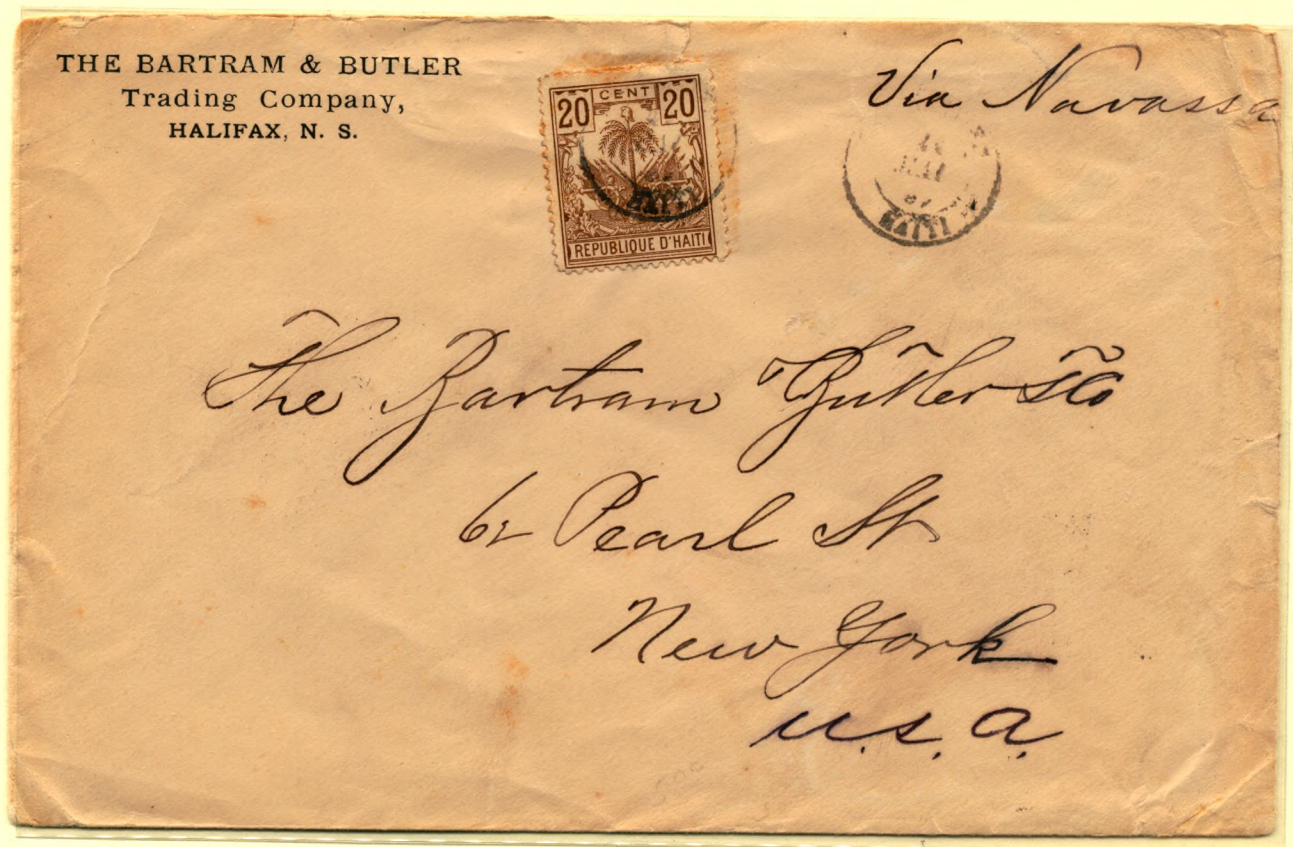 THE BARTRAM & BUTLER
Trading Company,
HALIFAX, N. S.
Via Navassa
20 CENT 20
REPUBLIQUE D'HAITI
HAITI
MAI
HAITI
The Bartram Butler & Co
62 Pearl St
New York
U.S.A.